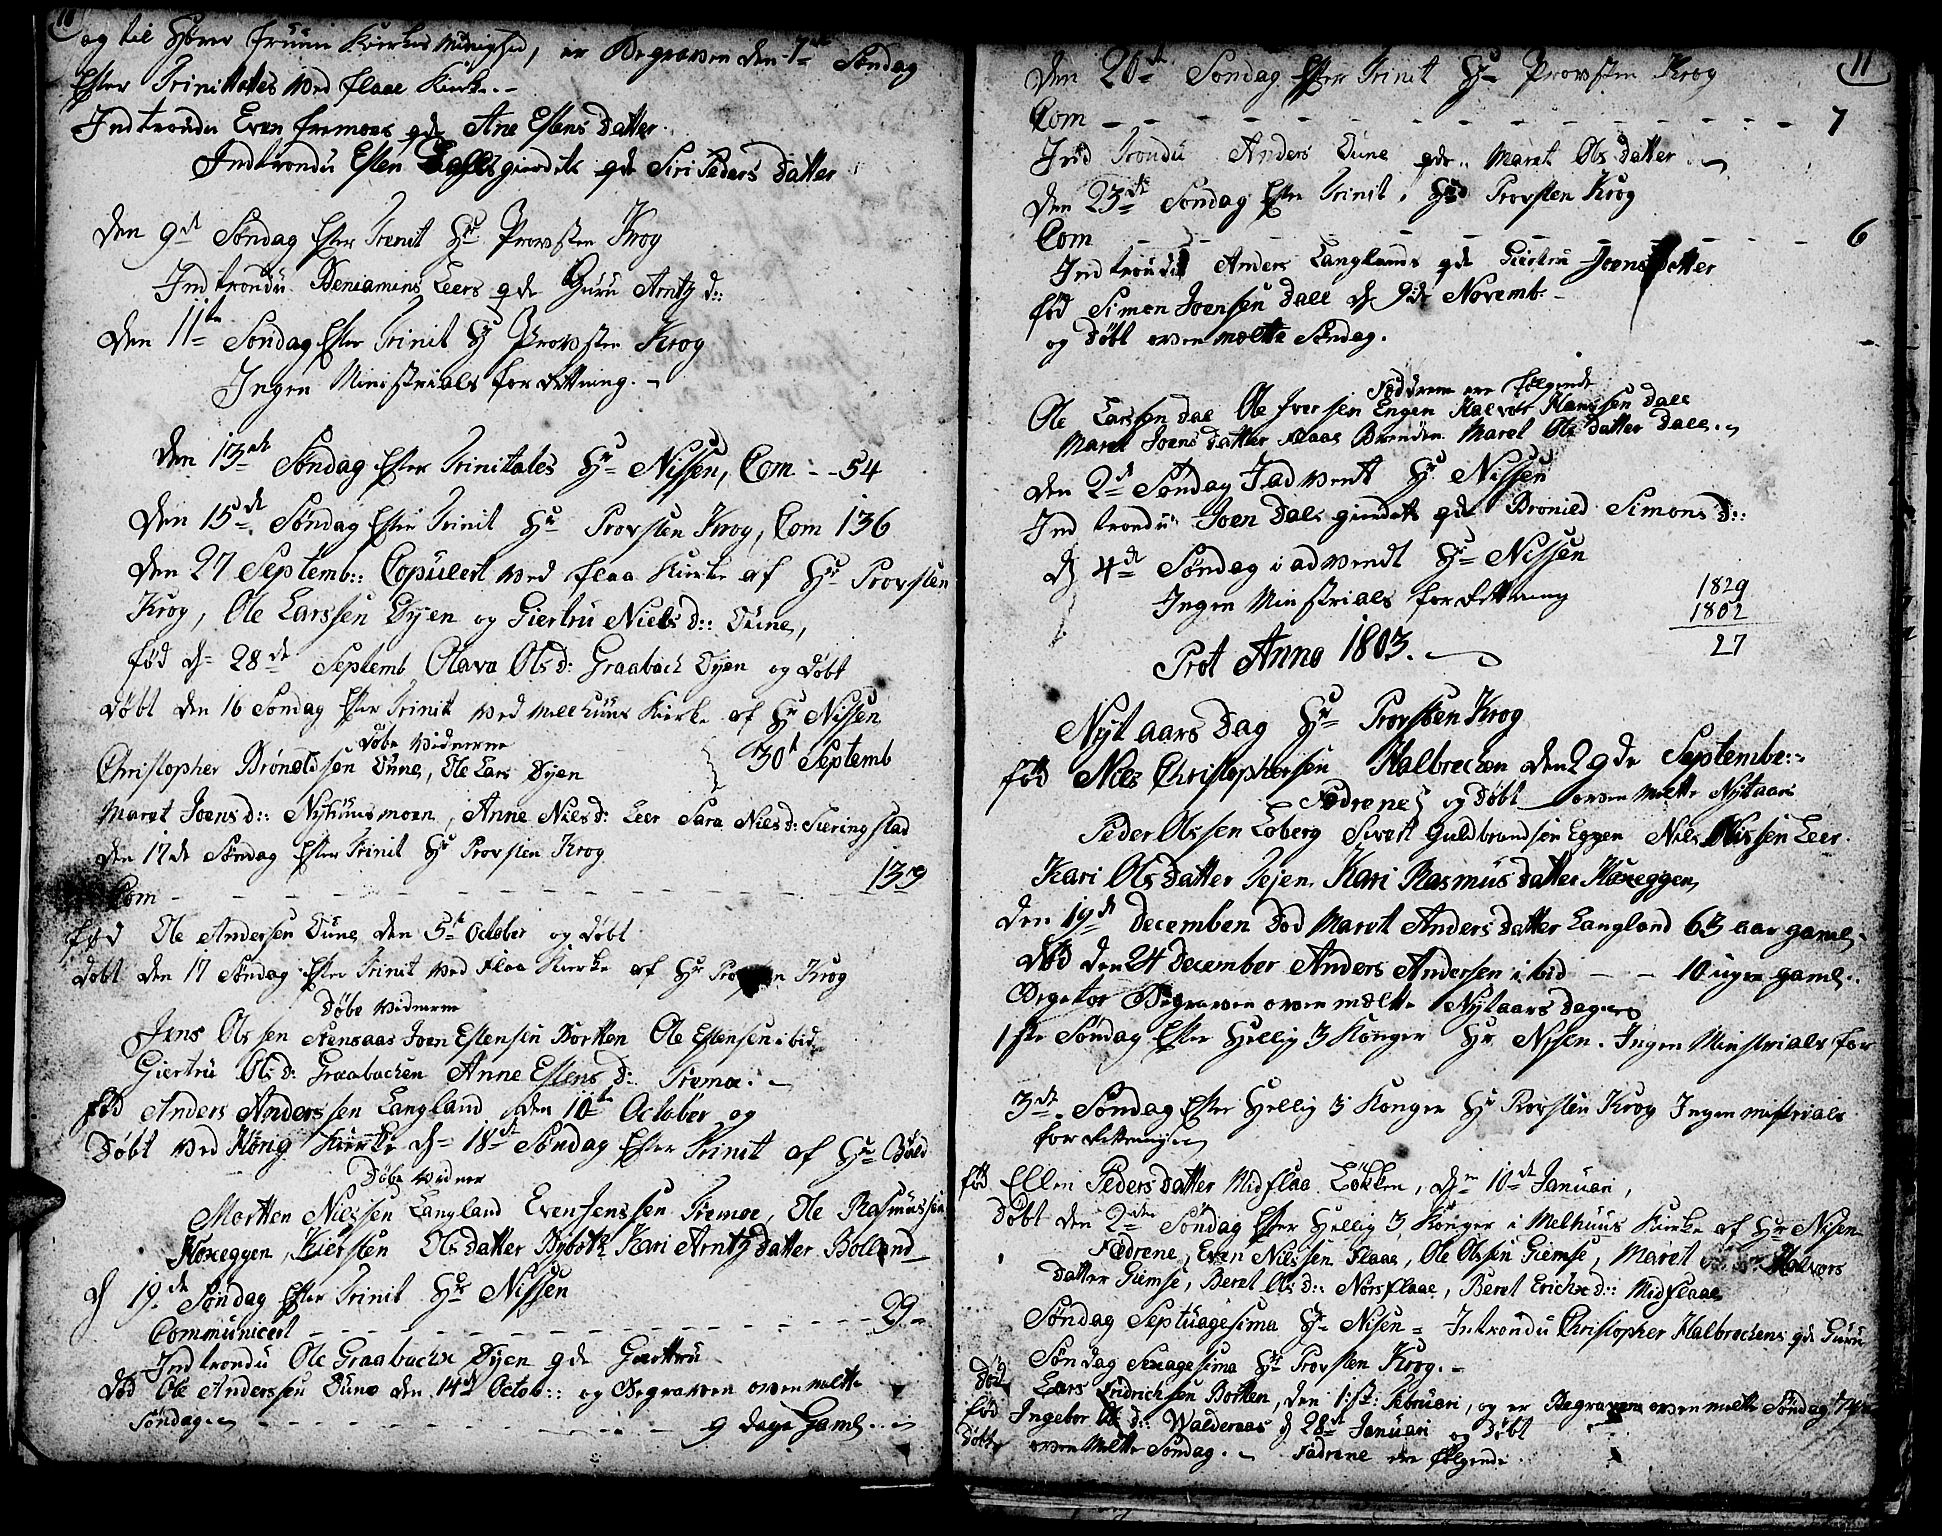 10
og til Hører fruue Kirkes Menighed, er Begraven den 7de Søndag
Efter Trinitates ved flaae Kirke.
Indtrondu Even fremoes qde Ane Estens datter.
Indtrondu Esten gierdets qde Siri Peders datter
den 9de Søndag Efter Trenit Hr Provsten Krog
Indtrondu Beniamins Leers qde Guru Arntz d::
den 11te Søndag Efter Trinit Hr Provsten Krog
Ingen Ministrials forrettning.
den 13de Søndag Efter Trinitates Hr Nissen, Com - - 54
den 15de Søndag Efter Trinit Hr Provsten Krog, Com 136
den 27 Septemb:: Copuleert ved flaa Kirke af Hr Provsten
Krog, Ole Larssen Øyen og Giertru Niels d:: Dune,
fød d= 28de Septemb Olava Ols d: Graabach Øyen og døbt
døbt den 16 Søndag Efter Trinit ved Melhuus Kirke af Hr Nissen
Døbe vidnerne
Christopher Brøneldsen Dune, Ole Lars Øyen 30t Septemb
Maret Joens d:: Nyhuusmoen, Anne Niels d: Leer Sara Niels d: Sieringstad
den 17de Søndag Efter Trinit Hr Provsten Krog
Com - - - - - - - - - - 139
fød Ole Andersen Dune den 5t October og døbt
døbt den 17 Søndag Efter Trinit ved Flaa Kierke af Hr Provsten Krog
Døbe vidnerne
Jens Olssen Stensaas Joen Estensen Borten Ole Estensen ibid
Giertru Ols d: Graabachen Anne Estens d: Fremoe.
fød Anders Anderssen Langland den 10te October og
Døbt ved Hørig Kierke d= 18de Søndag Efter Trinit af Hr Bald
Døbe vidner
Mortten Nielssen Langland Even Jenssen Fremoe, Ole Rasmussen
Høxeggen, Kiersten Ols datter Bybotz Kari Arntz datter Bolland
d 19de Søndag Efter Trinit Hr Nissen
Communicert - - - - - - - - - - 29
Indtrondu Ole Graabachx Øyen qde Giertru
død Ole Anderssen Dune den 14de Octob:: og Begraven ovenmelte
Søndag - - - - - - - - 9 dage Gaml.
11
den 20de Søndag Efter Trinit Hr Provsten Krog
Com - - - - - - - - - - 7
Ind trondu Anders Dune qde Maret Ols datter.
den 23de Søndag Efter Trinit. Hr Provsten Krog
Com - - - - - - - - - - 6
Indtrondu Anders Langlands qde Giertru Joens datter
fød Simen Joensen Dale d 9de Novemb.
og døbt ovenmelte Søndag.
Fødderne ere følgende
Ole Larssen dal Ole Iversen Engen Halvor Hanssen Dale
Maret Joens datter Flaae Brenden Maret Ols datter Dale.
den 2de Søndag I advent Hr Nissen
Ind trondu Joen Dals gierdets qde Bronild Simons d::
d 4de Søndag i advendt Hr Nissen
Ingen Minstrials forrettning
1829
1802
27
Prot Anno 1803.
Nyt aars Dag Hr Provsten Krog
fød Niels Christophersen Kalbrechen den 29de Septembr::
Fadrene og Døbt ovenmelte Nytaars
Peder Olssen Loberg Sivert Guldbrandsen Eggen Niels Nilssen Leer.
Kari Ols datter Tejen Kari Rasmus datter Høxeggen
den 19de decemben død Maret Anders datter Langland 63 aar gaml
død den 24 December Anders Andersen ibid - - 10 uger gaml.
Begetor Begraven ovenmelte Nytaarsdag
1ste Søndag Efter Hellig 3 Konger Hr Nisen. Ingen Minstrials for
3de Søndag Efter Hellig 3 Konger Hr Provsten Krog Ingen mistrials
forrettning
fød Ellen Peders datter Midflaa Løkken, den 10de Januari,
Døbt den 2den Søndag Efter Hellig 3 Konger i Melhuus Kirke af Hr Nisen
Fædrene, Even Nilssen Flaae, Ole Olssen Giemse, Maret Halvors
datter Giemse, Beret Ols d:: Norsflaae, Beret Erichs d:: Midflaae
Søndag Septuagesima Hr Nisen = Introndu Christopher Kalbrechens qde Guru
Søndag Sexagesima Hr Provsten Krog.
Død Lars Fridrichsen Borten, den 1:st: Februari, og er Begraven ovenmelte Søndag
fød Ingebor Ols d:: Walderaas d 28de Januari og Døbt
Døbt ovenmelte Søndag. Fadrene ere følgende